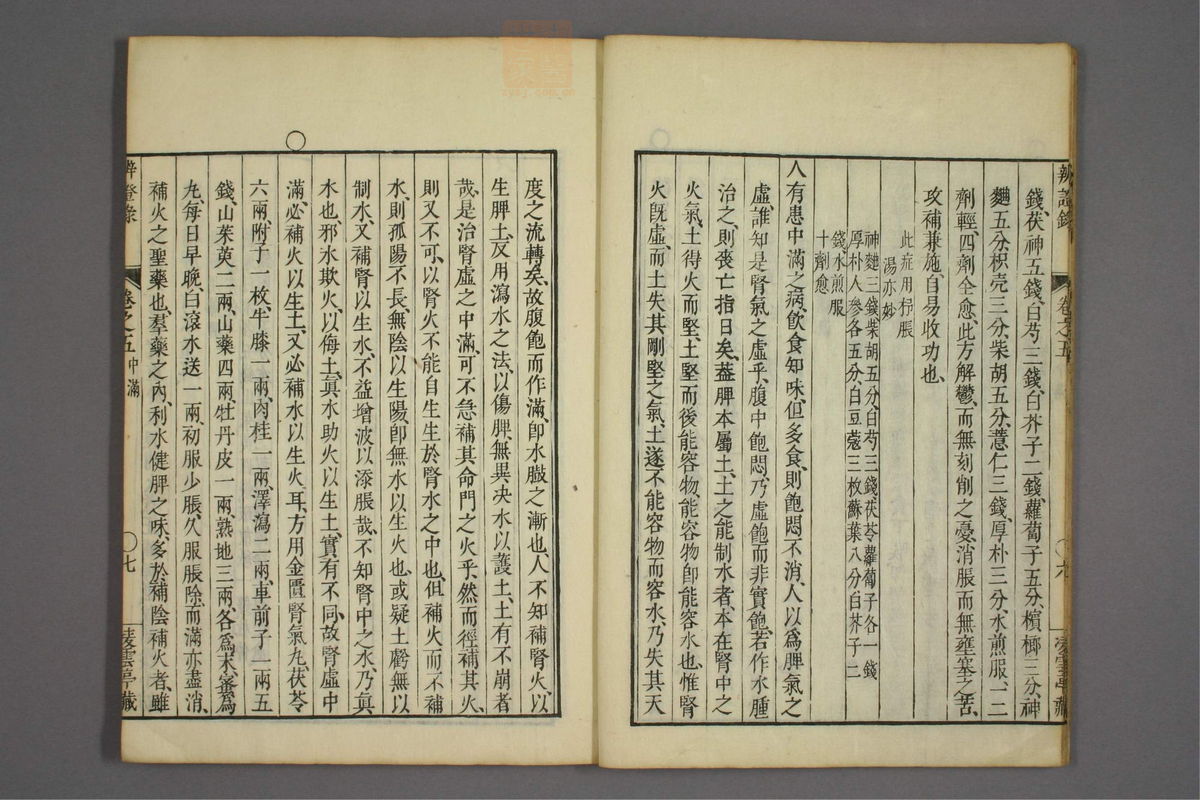 辨證錄 卷之五 六 凌雲亭藏
錢、茯神五錢、白芍三錢、白芥子二錢、蘿蔔子五分、檳榔三分、神
麯五分、枳壳三分、柴胡五分、薏仁三錢、厚朴三分、水煎服、一二
劑輕、四劑全愈、此方解鬱、而無刻削之憂、消脹而無壅塞之苦、
攻補兼施、自易收功也、
此症用抒脹
湯亦妙
神麯三錢柴胡五分、白芍三錢茯苓蘿蔔子各一錢
厚朴人參各五分、白豆蔻三枚蘇葉八分白芥子二
錢水煎服
十劑愈
人有患中滿之病、飲食知味、但多食、則飽悶不消、人以爲脾氣之
虛、誰知是腎氣之虛乎、腹中飽悶、乃虛飽而非實飽、若作水腫
治之、則喪亡指日矣、葢脾本屬土、土之能制水者、本在腎中之
火氣、土得火而堅、土堅而後能容物、能容物卽能容水也、惟腎
火旣虛、而土失其剛堅之氣、土遂不能容物而容水、乃失其天
度之流轉矣、故腹飽而作滿、卽水臌之漸也、人不知補腎火、以
生脾土、反用瀉水之法、以傷脾、無異决水以護土、土有不崩者
哉、是治腎虛之中滿、可不急補其命門之火乎、然而徑補其火、
則又不可、以腎火不能自生、生於腎水之中也、但補火而不補
水、則孤陽不長、無陰以生陽、卽無水以生火也、或疑土虧無以
制水、又補腎以生水、不益增波以添脹哉、不知腎中之水、乃眞
水也、邪水欺火、以侮土、眞水助火以生土、實有不同、故腎虛中
滿、必補火以生土、又必補水以生火耳、方用金匱腎氣丸、茯苓
六兩、附子一枚、牛膝一兩、肉桂一兩、澤瀉二兩、車前子一兩五
錢、山茱萸二兩、山藥四兩、牡丹皮一兩、熟地三兩、各爲末、蜜爲
丸、每日早晚、白滾水送一兩、初服少脹、久服脹除、而滿亦盡消、
補火之聖藥也、羣藥之內、利水健脾之味、多於補陰補火者、雖
辨證錄 卷之五 中滿 七 凌雲亭藏
zysj.com.cn